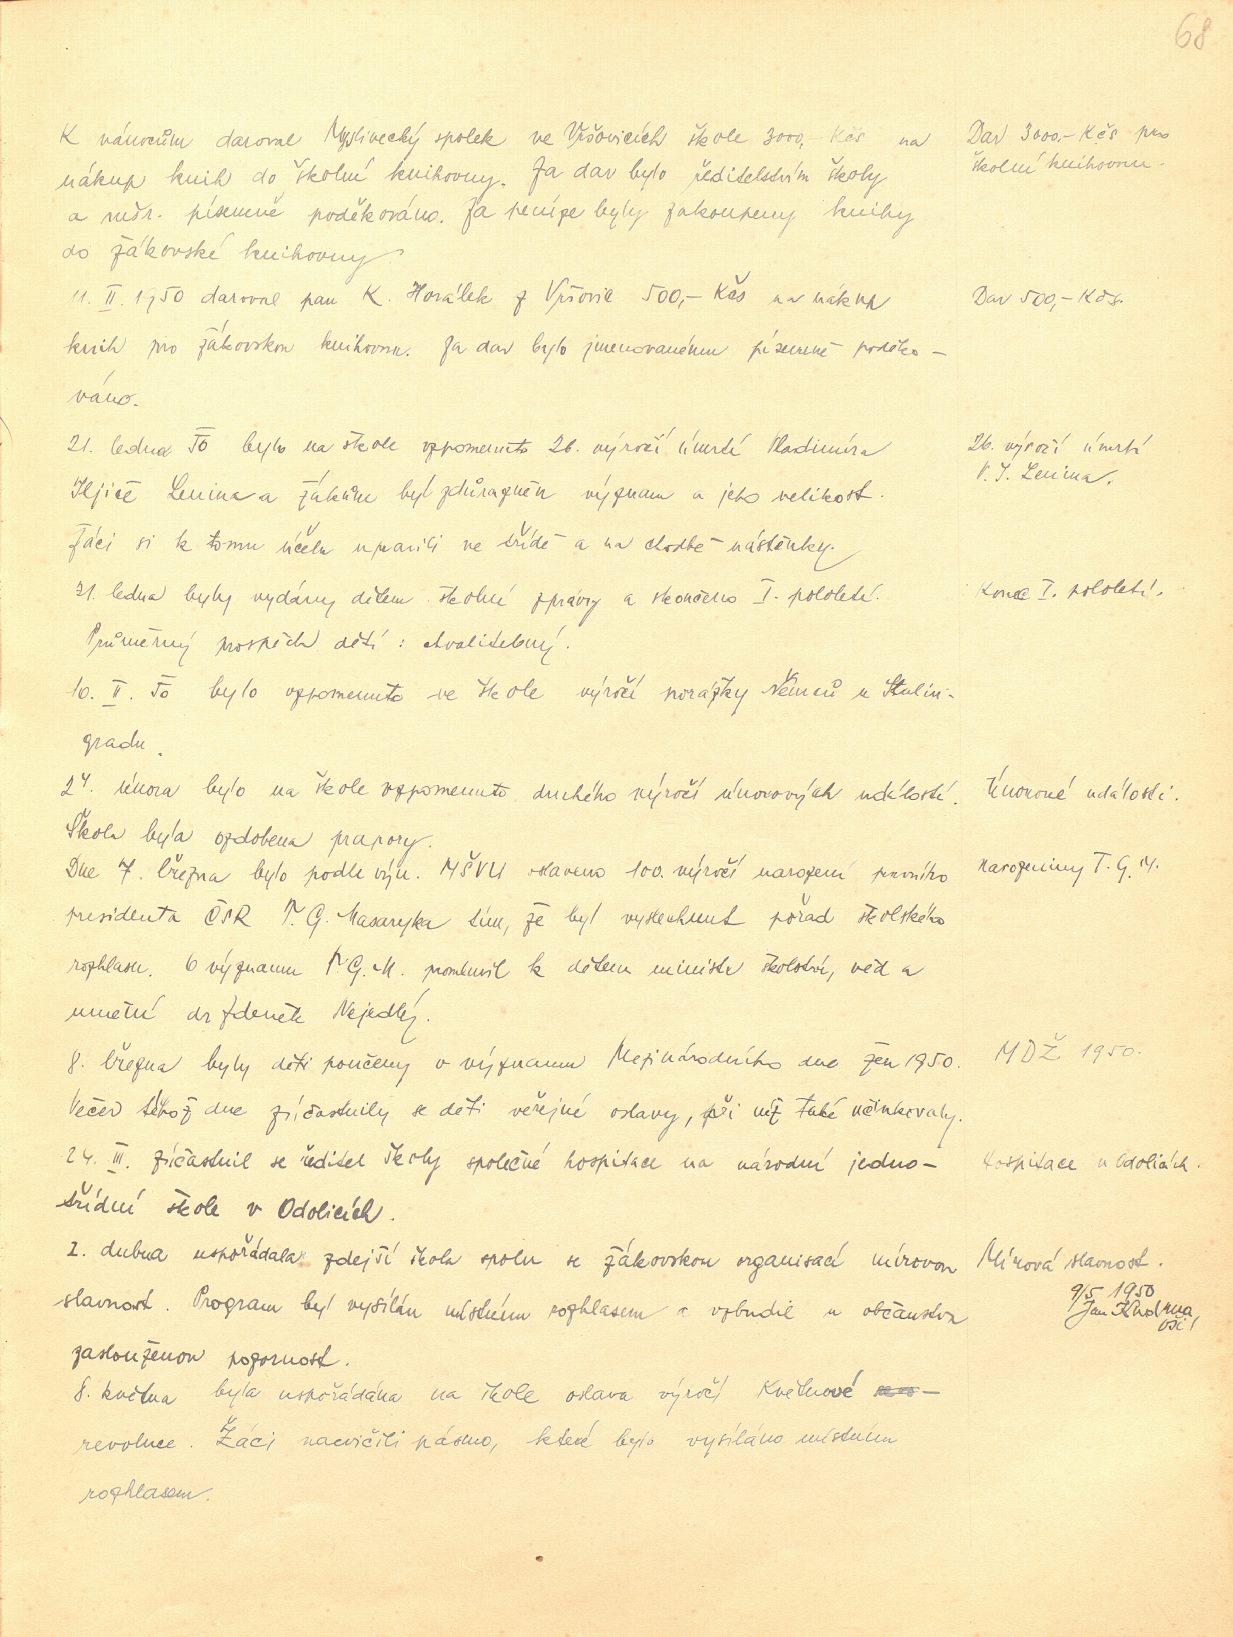 68
K vánocům daroval Myslivecký spolek ve Vršovicích škole 3000,- Kčs na
Dar 3000,- Kčs pro
nákup knih do školní knihovny. Za dar bylo ředitelstvím školy
školní knihovnu.
a mšr. písemně poděkováno. Za peníze byly zakoupeny knihy
do žákovské knihovny.
11. II. 1950 daroval pan K. Horálek z Vršovic 500,- Kčs na nákup
Dar 500,- Kčs.
knih pro žákovskou knihovnu. Za dar bylo jmenovanému písemně poděko-
váno.
21. ledna 50 bylo na škole vzpomenuto 26. výročí úmrtí Vladimíra
26. výročí úmrtí
Iljiče Lenina a žákům byl zdůrazněn význam a jeho velikost.
V. I. Lenina.
Žáci si k tomu účelu upravili ve třídě a na chodbě nástěnky.
31. ledna byly vydány dětem školní zprávy a skončeno I. pololetí.
Konec I. pololetí.
Průměrný prospěch dětí: chvalitebný.
10. II. 50 bylo vzpomenuto ve škole výročí porážky Němců u Stalin-
gradu.
24. února bylo na škole vzpomenuto druhého výročí únorových událostí.
Únorové události.
Škola byla ozdobena prapory.
Dne 7. března bylo podle výn. MŠVU oslaveno 100. výročí narození prvního
Narozeniny T. G. M.
presidenta ČSR T. G. Masaryka tím, že byl vyslechnut pořad školského
rozhlasu. O významu T. G. M. promluvil k dětem ministr školství, věd a
umění dr Zdeněk Nejedlý.
8. března byly děti poučeny o významu Mezinárodního dne žen 1950.
MDŽ 1950.
Večer téhož dne zúčastnily se děti veřejné oslavy, při níž také účinkovaly.
24. III. zúčastnil se ředitel školy společné hospitace na národní jedno-
Hospitace v Odolicích.
třídní škole v Odolicích.
2. dubna uspořádala zdejší škola spolu se žákovskou organisací mírovou
Mírová slavnost.
slavnost. Program byl vysílán místním rozhlasem a vzbudil u občanstva
9/5 1950
Jan
zaslouženou pozornost.
8. května byla uspořádána na škole oslava výročí Květnové
revoluce. Žáci nacvičili pásmo, které bylo vysíláno místním
rozhlasem.